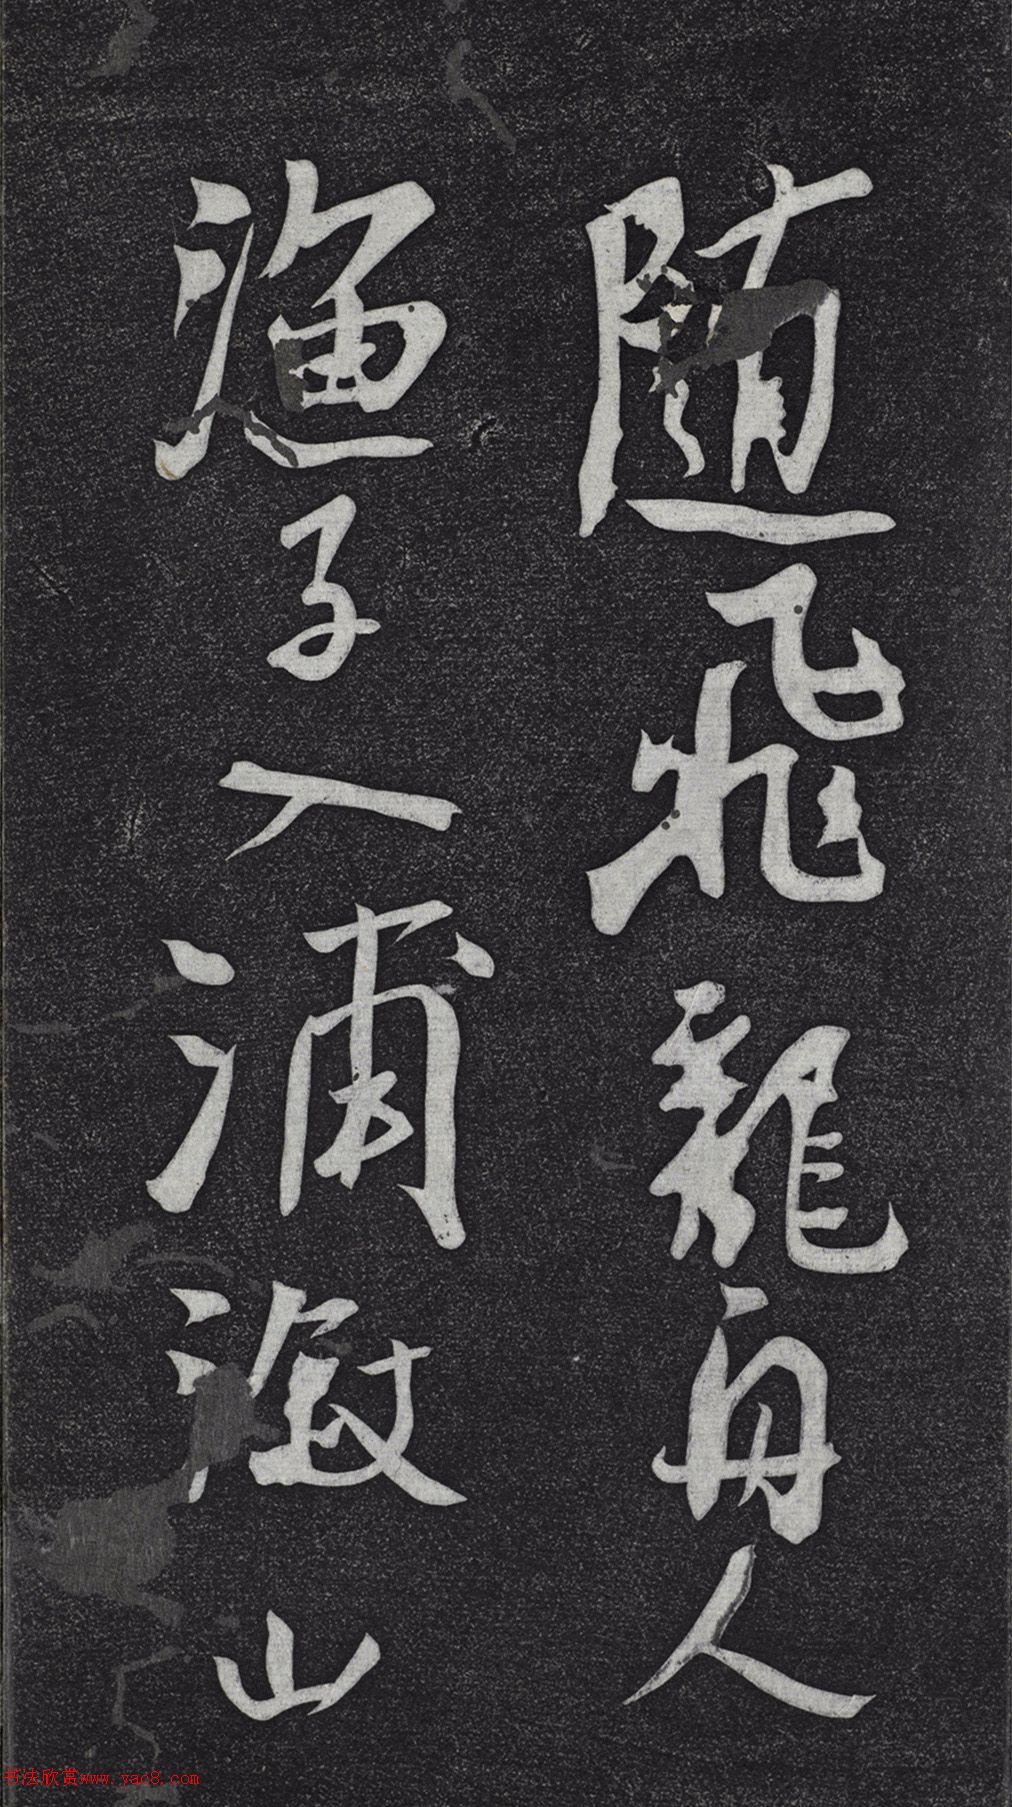 随飛龍舟人
漁子入浦漵山
书法欣赏www.yac8.com